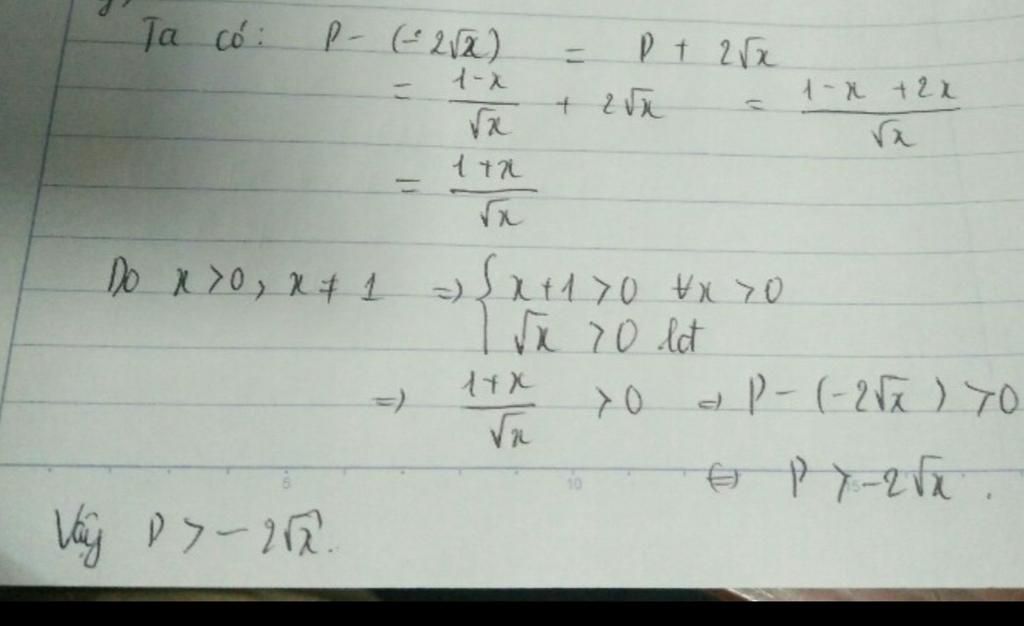 Ta có: P - (-2√x) = P + 2√x
= (1-x)/√x + 2√x = (1-x+2x)/√x
= (1+x)/√x
Do x>0, x≠1 => { x+1>0 ∀x>0
√x >0 lđt
=> (1+x)/√x >0 => P-(-2√x)>0
5 10 15
<=> P>-2√x.
Vậy P>-2√x.